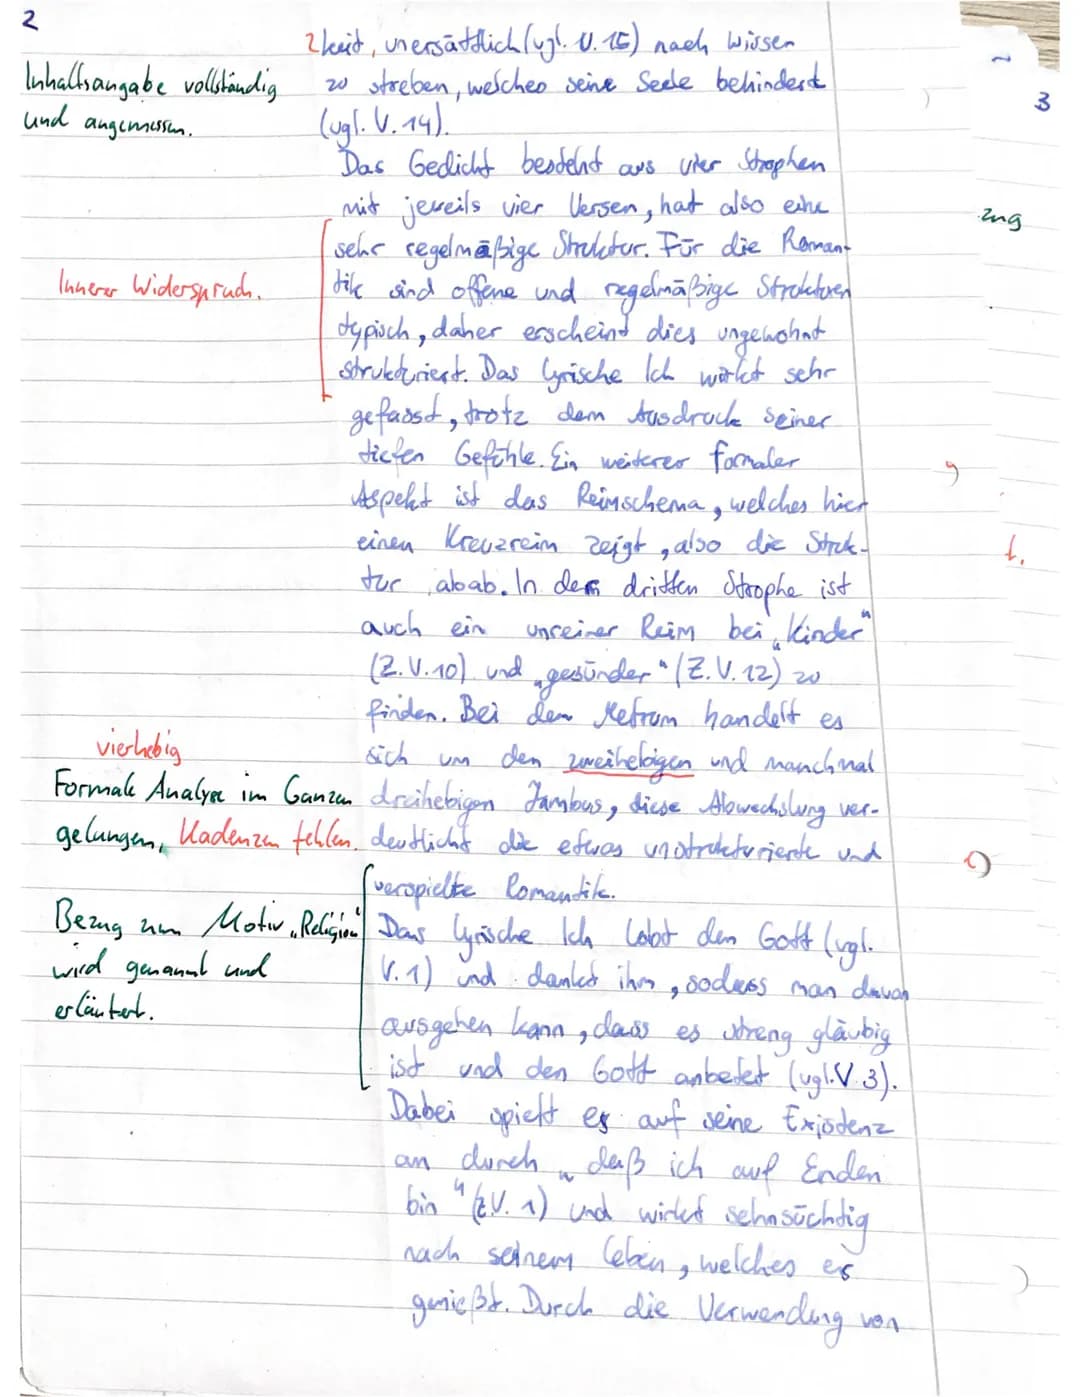 2
2keit, unersättlich (vgl. V. 15) nach Wissen
Inhaltsangabe vollständig
und angemessen.
zu streben, welches seine Seele behindert
(vgl. V. 14).
Das Gedicht besteht aus vier Strophen
mit jeweils vier Versen, hat also eine
sehr regelmäßige Struktur. Für die Roman-
Innerer Widerspruch.
tik sind offene und regelmäßige Strukturen
typisch, daher erscheint dies ungewohnt
strukturiert. Das lyrische Ich wirkt sehr
gefasst, trotz dem Ausdruck seiner
tiefen Gefühle. Ein weiterer formaler
Aspekt ist das Reimschema, welches hier
einen Kreuzreim zeigt, also die Struk-
tur abab. In der dritten Strophe ist
auch ein unreiner Reim bei „Kinder"
(Z.V.10) und „gesünder" (Z.V.12) zu
finden. Bei dem Metrum handelt es
vierhebig
sich um den zweihebigen und manchmal
Formale Analyse im Ganzen
gelungen, Kadenzen fehlen.
dreihebigen Jambus, diese Abwechslung ver-
deutlicht die etwas unstrukturierte und
verspielte Romantik.
Bezug zum Motiv „Religion"
wird genannt und
erläutert.
Das lyrische Ich lobt den Gott (vgl.
V. 1) und dankt ihm, sodass man davon
ausgehen kann, dass es streng gläubig
ist und den Gott anbetet (vgl. V. 3).
Dabei spielt es auf seine Existenz
an durch „daß ich auf Erden
bin" (Z.V. 1) und wirkt sehnsüchtig
nach seinem Leben, welches es
genießt. Durch die Verwendung von
3
zug
t.